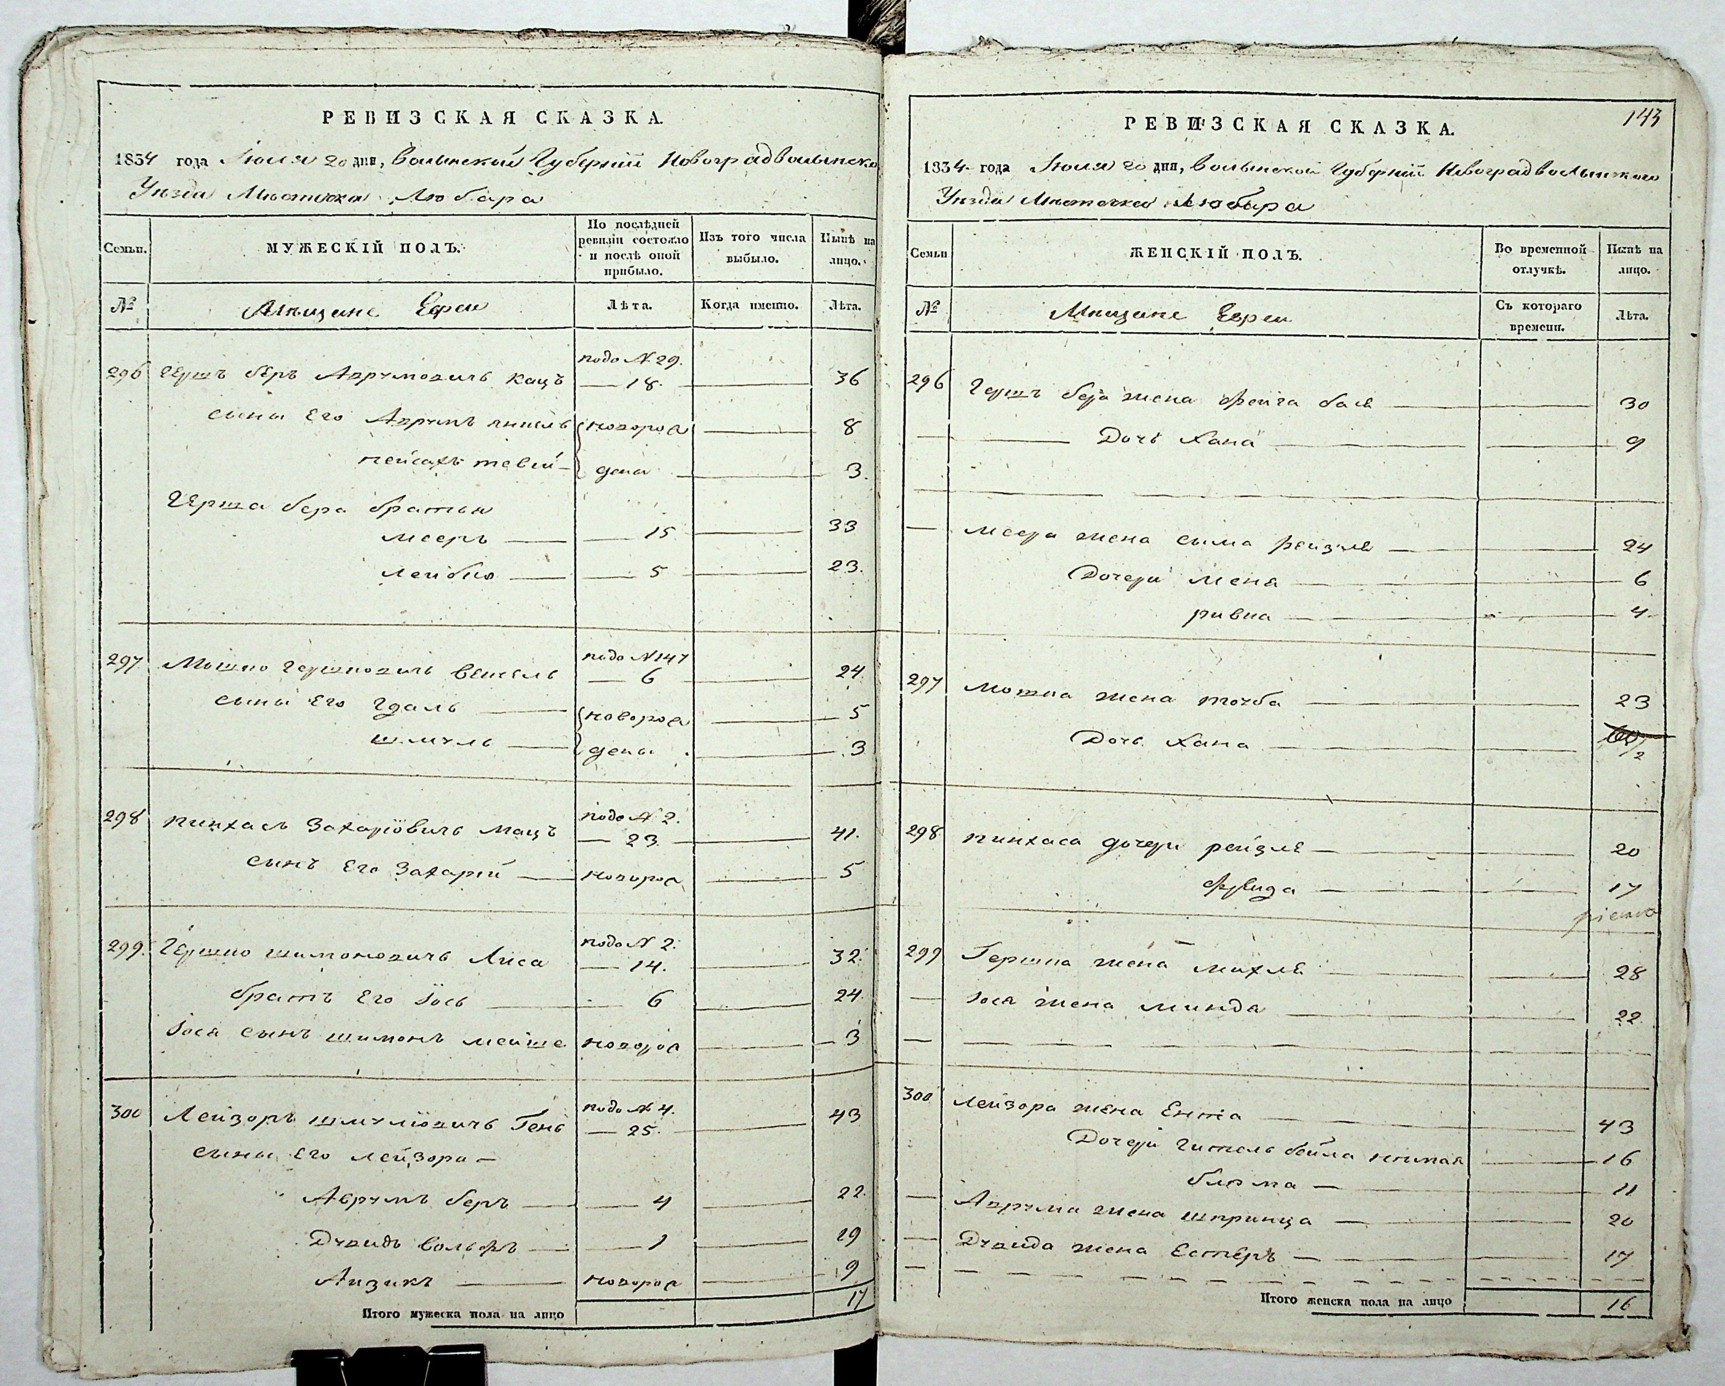 РЕВИЗСКАЯ СКАЗКА.
1834 года Июля 20 дня, Волынской Губернии Новоградволынско
Уезда Местечка Любара
Семьи.
МУЖЕСКІЙ ПОЛЪ.
По послѣдней ревизіи состояло и послѣ оной прибыло.
Изъ того числа выбыло.
Нынѣ на лицо.
№
Мещане Евреи
Лѣта.
Когда именно.
Лѣта.
подъ № 29.
296 Гершъ беръ Аврумовичъ Кацъ — 18. — 36
сыны Его Аврумъ новорож — 8
пейсахъ тевій — дены — 3.
Герша бера братья
мееръ — 15 — 33
лейбка — 5 — 23.
подо № 147
297 Мошко Гершковичъ — 6 — 24
сыны Его Гдаль — новорож — 5
шмуль — дены — 3
подо № 2.
298 пинхасъ Захаріовичъ мацъ — 23. — 41.
сынъ Его Захарій — новорож — 5
подо № 2.
299. Гершко шимоновичъ Лиса — 14. — 32.
братъ Его Іось — 6 — 24
Іося сынъ шимонъ мейше новорож — 3
подо № 4.
300 Лейзоръ шмуліовичъ Гень — 25. — 43
сыны Его лейзора —
Аврумъ беръ — 4 — 22.
Дувидъ вольфъ — 1 — 19
Аизикъ — новорож — 9
Итого мужеска пола на лицо 17
143
РЕВИЗСКАЯ СКАЗКА.
1834 года Июля 20 дня, Волынской Губернии Новоградволынского
Уезда Местечка Любара
Семьи
ЖЕНСКІЙ ПОЛЪ.
Во временной отлучкѣ.
Нынѣ на лицо.
№
Мещане Евреи
Съ котораго времени.
Лѣта.
296 Гершъ бера жена фейга бася — 30
Дочь Хана — 9
меера жена сыма рейзля — 24
Дочери меня — 6
ривка — 4.
297 Мошка жена тоуба — 23
Дочь Хана — 1/2
298 пинхаса дочери рейзле — 20
фрейда — 17
299 Гершка жена михля — 28
Іося жена минда — 22
300 Лейзора жена Ента — 43
Дочери Гитель бейла — 16
блюма — 11
Аврума жена шпринца — 20
Дувида жена Естеръ — 17
Итого женска пола на лицо 16